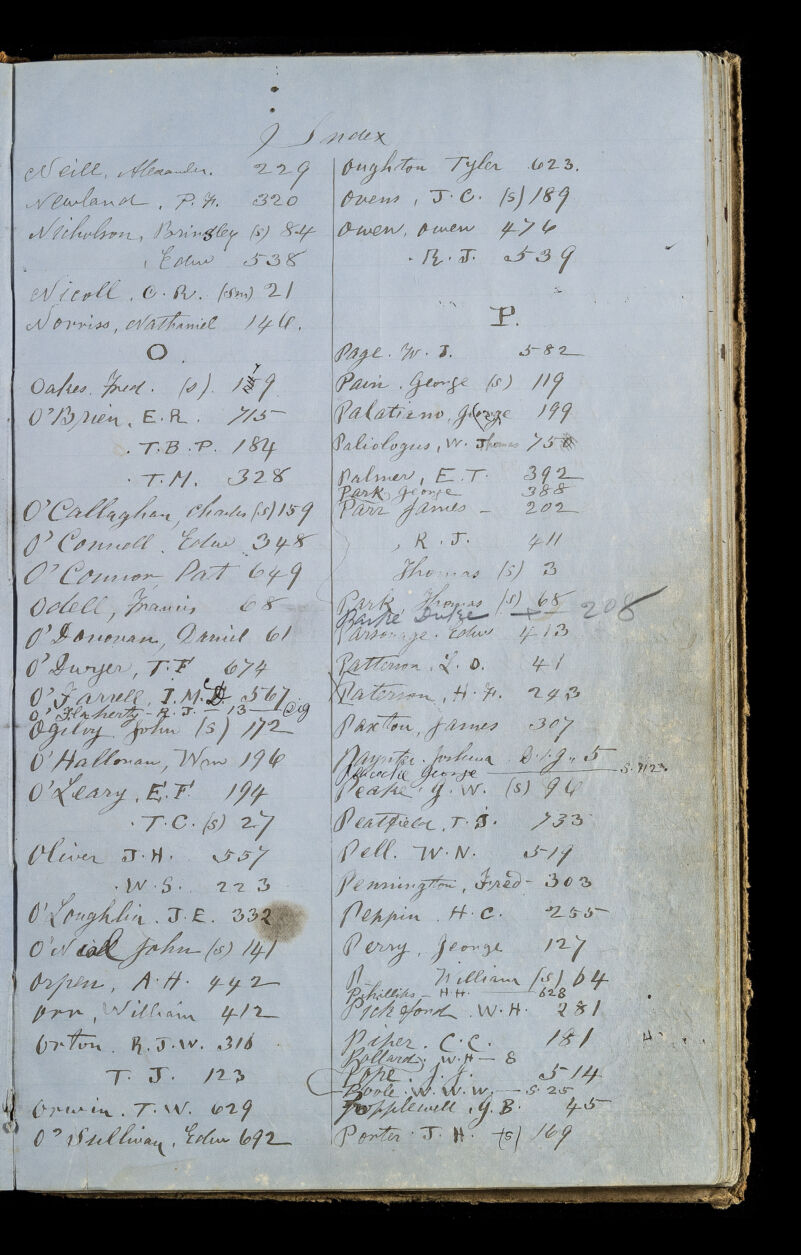 Index
Neill, Alexander. 229
Newland, P. F. 320
Nicholson, Brinsley (s) 84
, Edw 538
Nicoll, C. R. (sm) 21
Norriss, Nathaniel 146.
O.
Oakes, Fred. (s). 159
O'Brien, E. R. 715
. T. B. P. 184
. T. M. 328
O'Callaghan, Charles (s) 159
O'Connell, Edw 348
O'Connor, Pat 649
Odell, Francis 68
O'Donovan, Daniel 61
O'Dwyer, T. F 674
O'Farrell, I. M. 567
O'Flaherty R. J. — 13 — Dig
Ogilvy John (s) 172
O'Halloran, Wm 196
O'Leary, E. F. 194
. T. C. (s) 27
Oliver J. H. 557
. W. S. 223
O'Loughlin. J. E. 332
O'Neill John (s) 141
Orpen, A. H. 442
Orr, William 412
Orton. R. J. W. 316
T. J. 123
Orwin. T. W. 629
O'Sullivan, Edw 692
Oughton Tyler 623.
Ovens, J. C. (s) 189
Owen, Owen 476
. R. J. 539
P.
Page. W. J. 582
Pain. George (s) 119
Palatiano, George 199
Paliologus, W. Thomas 75
Palmer, E. T. 392
Park George 388
Parr James - 202
, R. J. 411
Thomas (s) 3
Park, Thomas (s) 68
Parke 208
Parsonage. Edw 413
Patterson, L. O. 41
Paterson, H. F. 243
Paxton, James 307
Paynter. Joshua. Dig. 5
George — S. 123
Peake. G. W. (s) 96
Peatfield, T. J. 733
Pell. W. N. 519
Pennington, Fred - 303
Peppin. H. C. 255
Perry, George 127
William (s) 64
Phillips — H. H. — 628
Pickford. W. H. 281
Piper. C. C. 181
Pollard. W. H — 8
Pope. J. J. 514
Poole. W. W. W. — S. 25
Popplewell, G. B. 45
Porter. J. H. (s) 169